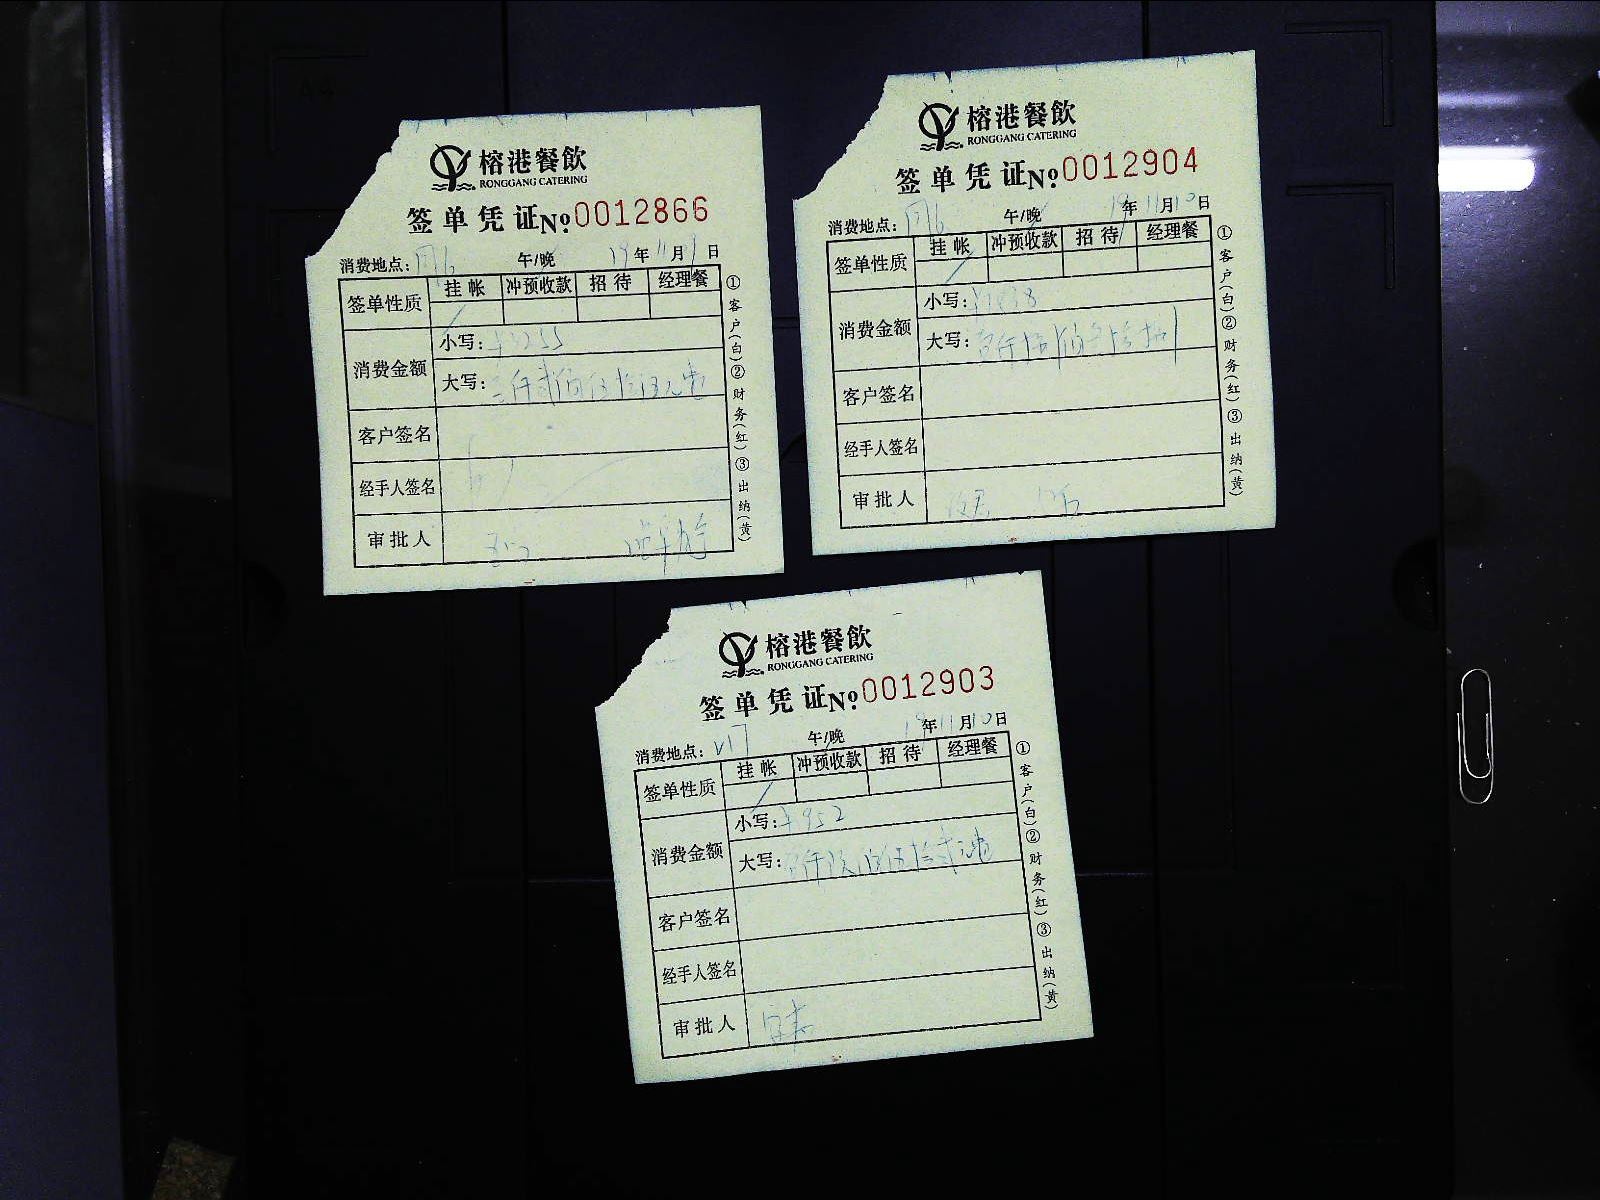 榕港餐飲
RONGGANG CATERING
签单凭证№0012866
消费地点： 午/晚 19年11月9日
签单性质 挂帐 冲预收款 招待 经理餐
消费金额 小写：¥3255
大写：三仟贰佰伍拾伍元
客户签名
经手人签名
审批人
①客户(白)②财务(红)③出纳(黄)
榕港餐飲
RONGGANG CATERING
签单凭证№0012904
消费地点： 午/晚 19年11月10日
签单性质 挂帐 冲预收款 招待 经理餐
消费金额 小写：
大写：
客户签名
经手人签名
审批人
①客户(白)②财务(红)③出纳(黄)
榕港餐飲
RONGGANG CATERING
签单凭证№0012903
消费地点： 午/晚 19年11月10日
签单性质 挂帐 冲预收款 招待 经理餐
消费金额 小写：¥952
大写：
客户签名
经手人签名
审批人
①客户(白)②财务(红)③出纳(黄)